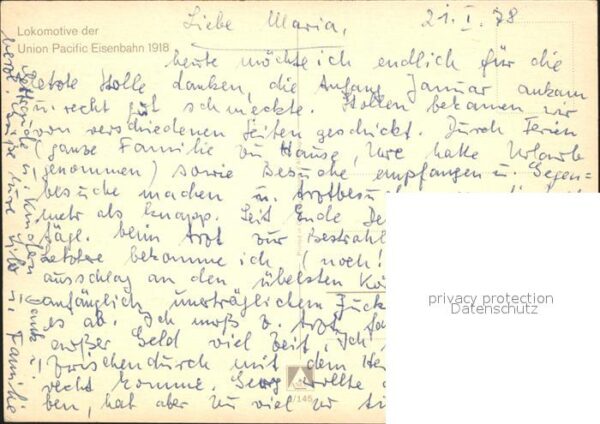 Lokomotive der
Union Pacific Eisenbahn 1918
Liebe Maria,
21. I. 78
heute möchte ich endlich für die
letzte Stolle danken, die Anfang Januar ankam
u. recht gut schmeckte. Stollen bekamen wir
von verschiedenen Seiten geschickt. Durch Ferien
(ganze Familie zu Hause, Uwe hatte Urlaub
genommen) sowie Besuche empfangen u. Gegen=
besuche machen u.
mehr als knapp. Seit Ende De
tägl. beim Arzt zur Bestrahl
Letztere bekomme ich (noch!
ausschlag an den übelsten Kö
anfänglich unerträglichem Juck
es ab. Ich muß z. Arzt
außer Geld viel Zeit. Ich
Zwischendurch mit dem He
recht komme. Georg wollte
ben, hat aber zu viel zu
u. Kindern
u. Familie
privacy protection
Datenschutz
/145